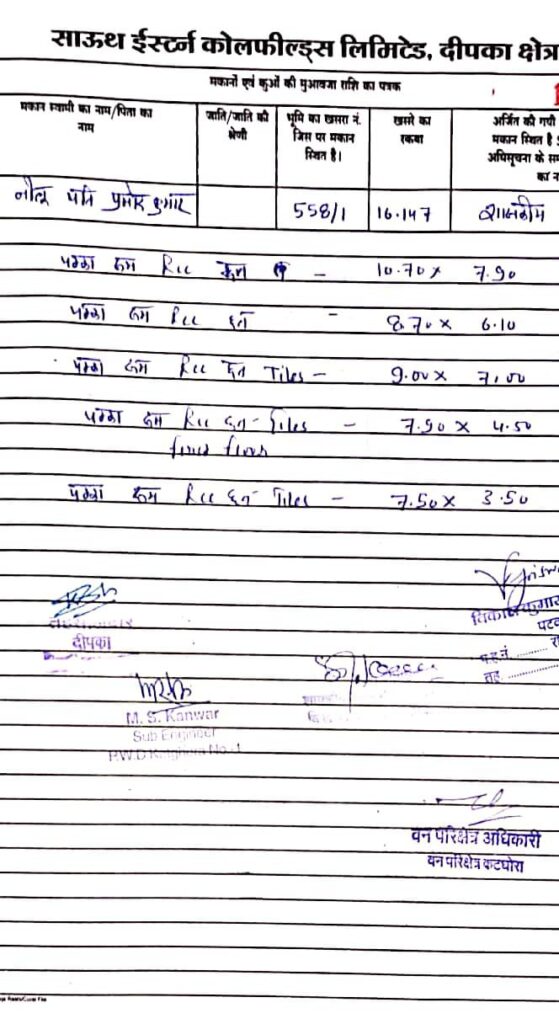 साऊथ ईस्टर्न कोलफील्ड्स लिमिटेड, दीपका क्षेत्र
मकानों एवं कुओं की मुआवजा राशि का पत्रक
मकान स्वामी का नाम/पिता का नाम
जाति/जाति की श्रेणी
भूमि का खसरा नं. जिस पर मकान स्थित है।
खसरे का रकबा
अर्जित की गयी
मकान स्थित है
अधिसूचना के स
का न
नीलू पति प्रमोद कुमार 558/1 16.147 शासकीय
पक्का रूम Rcc छत - 10.70 x 7.90
पक्का रूम Rcc छत - 8.70 x 6.10
पक्का रूम Rcc छत Tiles - 9.00 x 7.00
पक्का रूम Rcc छत Tiles - 7.90 x 4.50
पक्का रूम Rcc छत Tiles - 7.50 x 3.50
दीपका
विकास कुमार
प.ह.नं. ..........
तह. ..........
M. S. Kanwar
Sub Engineer
वन परिक्षेत्र अधिकारी
वन परिक्षेत्र कटघोरा